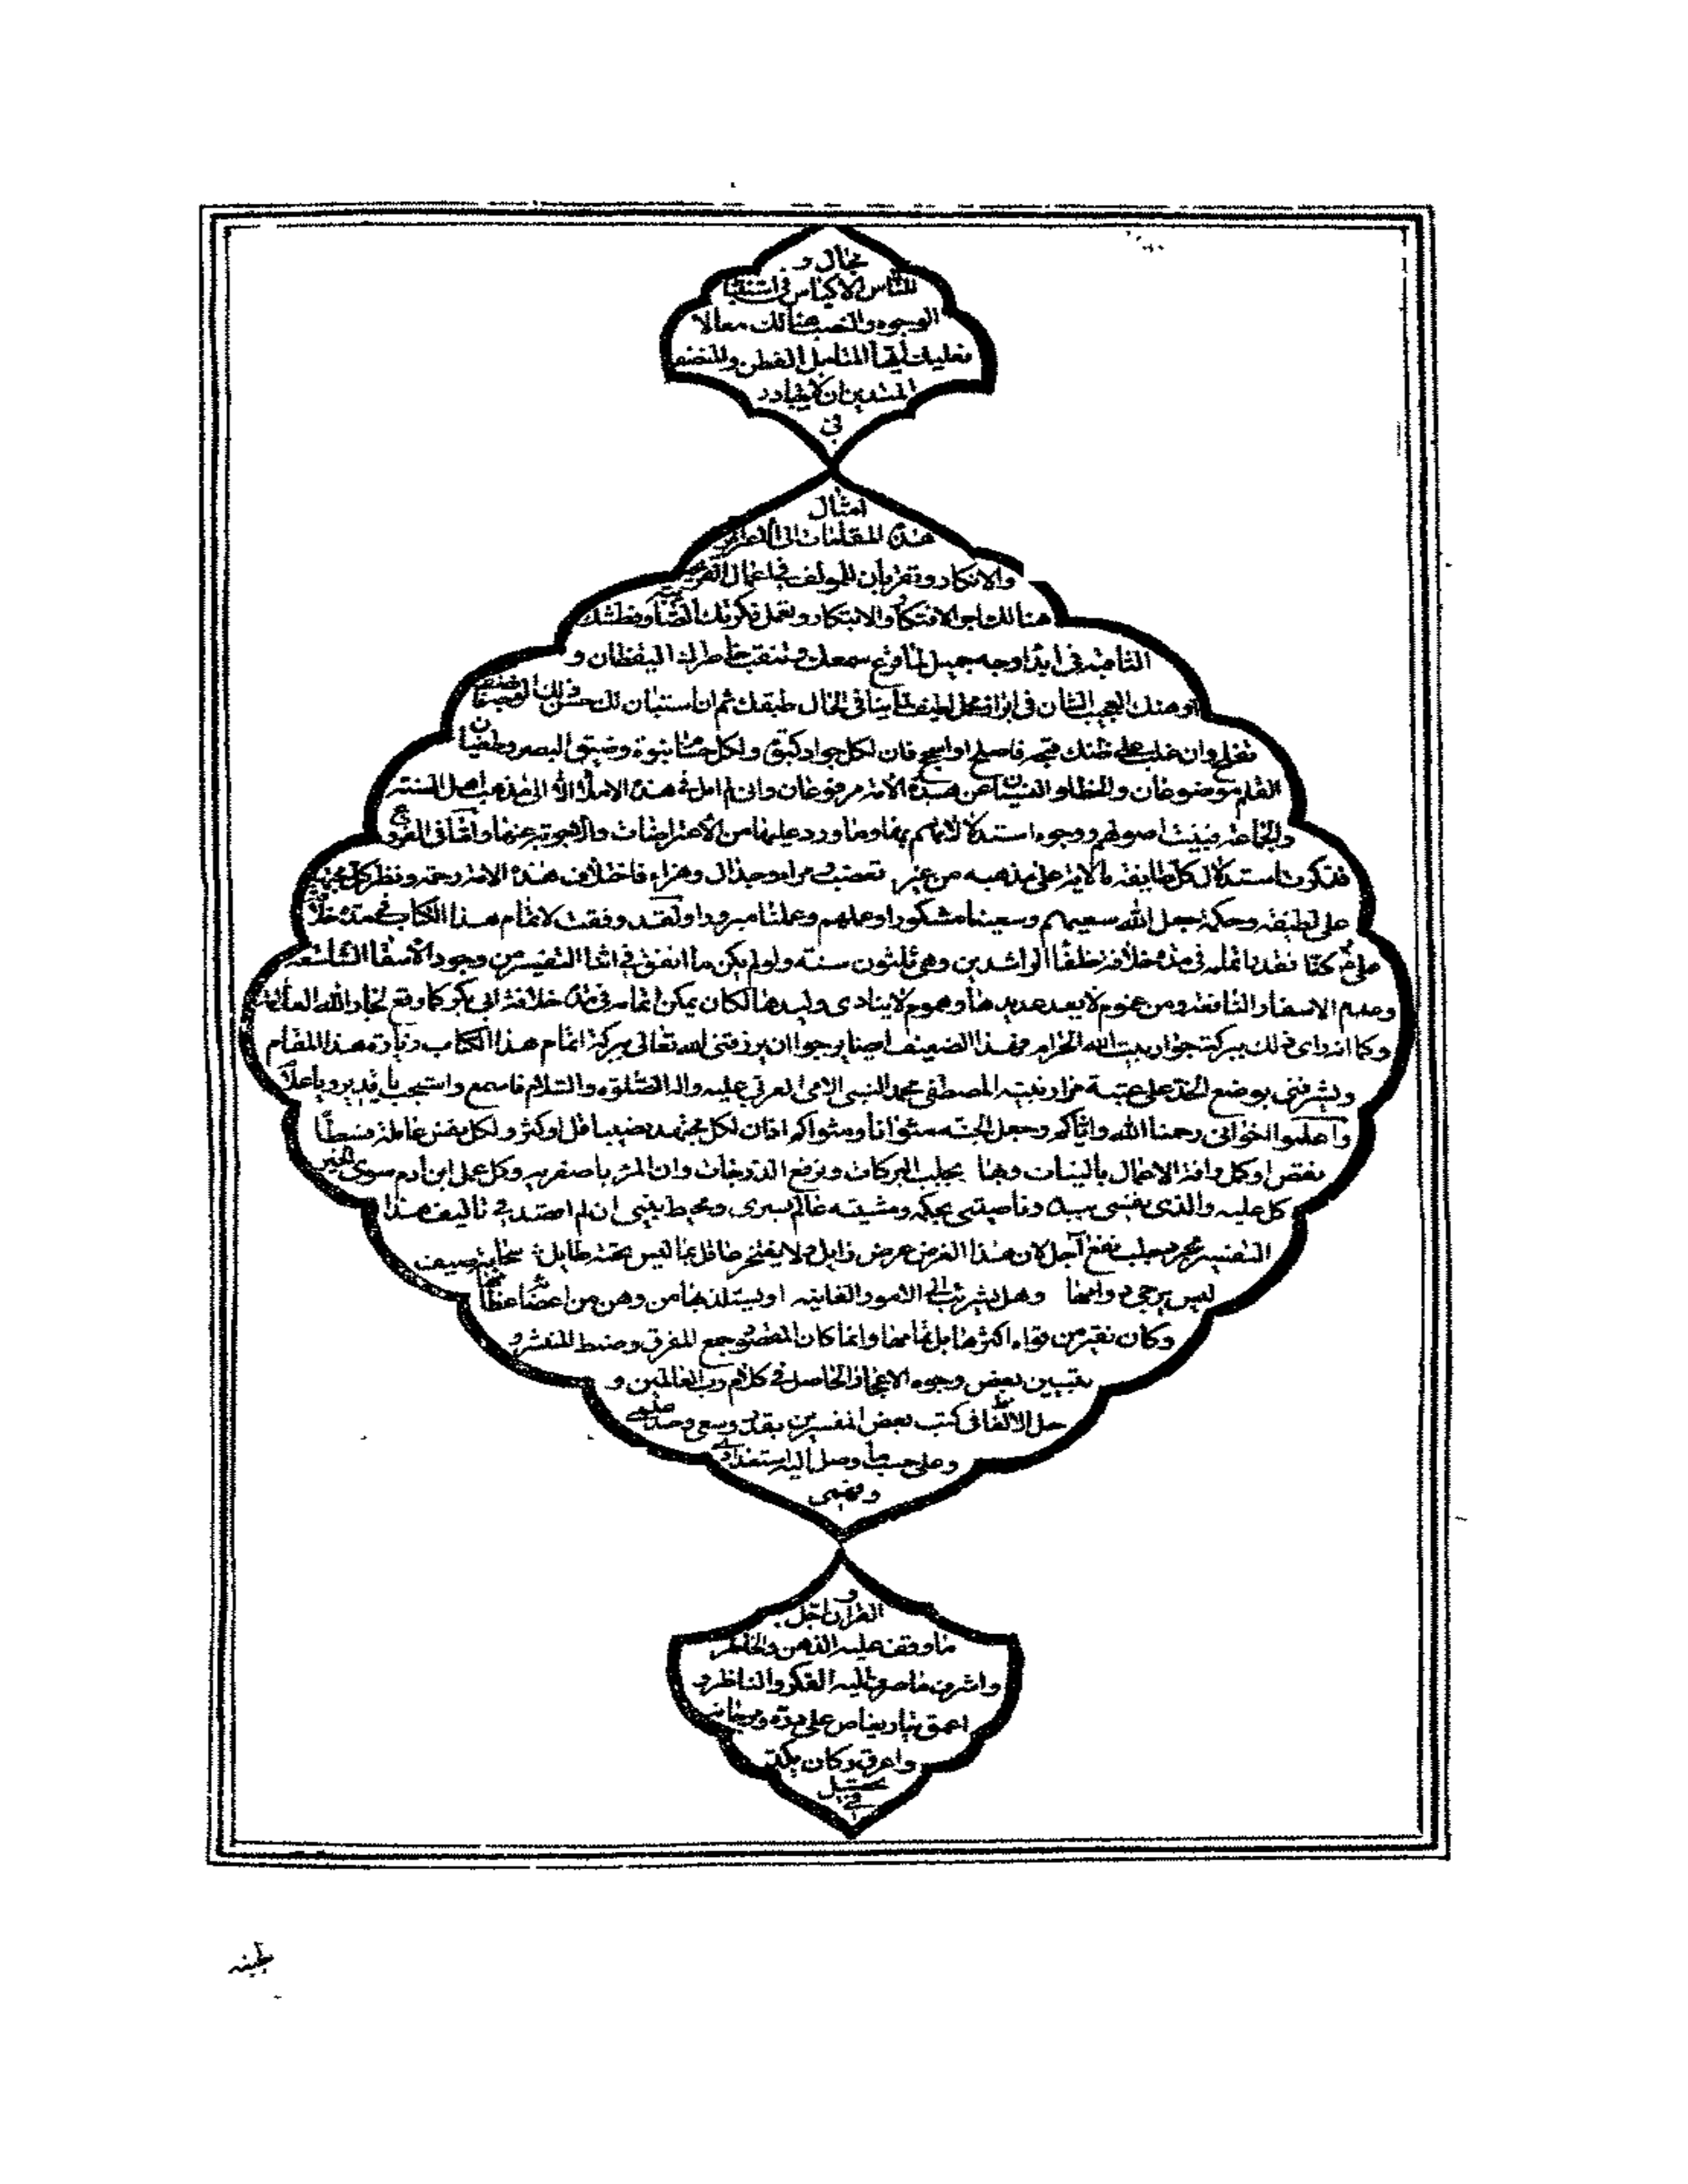 مجال و
للناس الاكياس فى استنباط
الوجوه والنسب هنالك معالا
فعليك ايها المتامل الفطن والمنصف
المتدين ان لا تبادر
فى
امثال
هذه المقامات الى الاعتراض
والانكار وتقر بان للمولف فى اعمال القريحة
هنالك اجر الافتكار والابتكار وتعمل فكرتك الصائبة وفطنتك
الثاقبة فى ابداء وجه جميل لما قرع سمعك وتنقب خاطرك اليقظان و
ذهنك العجيب الشان فى ابراز محمل لطيف لما ينافى الحال طبقك ثم ان استبان لك حسن ذلك
فعلى وان غلب على ظنك قبحه فاصلح او اسجح فان لكل جواد كبوة ولكل حسام نبوة وضيق البصر وطغيان
القلم موضوعان والخطاء والنسيان عن هذه الامة مرفوعان وان لم امل فى هذا الاملاء الا الى مذهب اهل السنة
والجماعة فبينت اصولهم ووجوه استدلالاتهم بها وما ورد عليها من الاعتراضات والاجوبة عنها واما فى الفروع
فذكرت استدلال كل طايفة بالاية على مذهبه من غير تعصب ومراء وجدال وهراء فاختلاف هذه الامة رحمة ونظر كل مجتهد
على لطيفة وحكمة جعل الله سعيهم وسعينا مشكورا وعملهم وعملنا مبرورا ولقد وفقت لاتمام هذا الكتاب فى مدة خلافة
على كنا نقدر اتمامه فى مدة خلافة خلفاء الراشدين وهى ثلثون سنة ولو لم يكن ما اتفق فى اثناء التفسير من وجود الاسفار الشاسعة
وعدم الاسفار النافعة ومن غموم لا يعد عديدها وهموم لا ينادى وليدها لكان يمكن اتمامه فى مدة خلافة ابى بكر كما وقع لجار الله العلامة
وكما انه راى ذلك ببركة جوار بيت الله الحرام فهذا الضعيف ايضا يرجو ان يرزقنى الله تعالى ببركة اتمام هذا الكتاب زيارة هذا المقام
ويشرفنى بوضع الخد على عتبة مزار نبيه المصطفى محمد النبى الامى العربى عليه واله الصلوة والسلام فاسمع واستجب يا قدير ويا علام
واعلموا اخوانى رحمنا الله واياكم وجعل الجنة مثوانا ومثواكم ان لكل مجتهد نصيبا قل او كثر ولكل نفس عاملة قسطا
نقص او كمل وافة الاعمال بالنيات وبها يجلب البركات وترفع الدرجات وان المرء باصغريه وكل عمل ابن ادم سوى الخير
كل عليه والذى نفسى بيده وناصيتى بحكمه ومشيته عالم بسرى ومحيط بنيتى ان لم اقصد فى تاليف هذا
التفسير مجرد جلب نفع آجل لان هذا الغرض عرض زايل ولا يفتخر عاقل بما ليس تحته طايل سحابة صيف
ليس يرجى دوامها وهل يشرئب الى الامور الفانيه او يستلذ بها من وهن من اعضائه عظامها
وكان تغير من قواه اكثرها بل تمامها وانما كان المقصود جمع المتفرق وضبط المنتشر و
تبيين بعض وجوه الاعجاز الحاصل فى كلام رب العالمين و
حل الالفاظ فى كتب بعض المفسرين بقدر وسعى
وعلى حسب ما وصل اليه استعدادى
وفهمى
و
القران اجل
ما وقف عليه الذهن والخاطر
واشرف ما صرف اليه الفكر والناظر و
اعمق بحار يغاص على درره ومرجانه
واعرق
يحتيل
فى